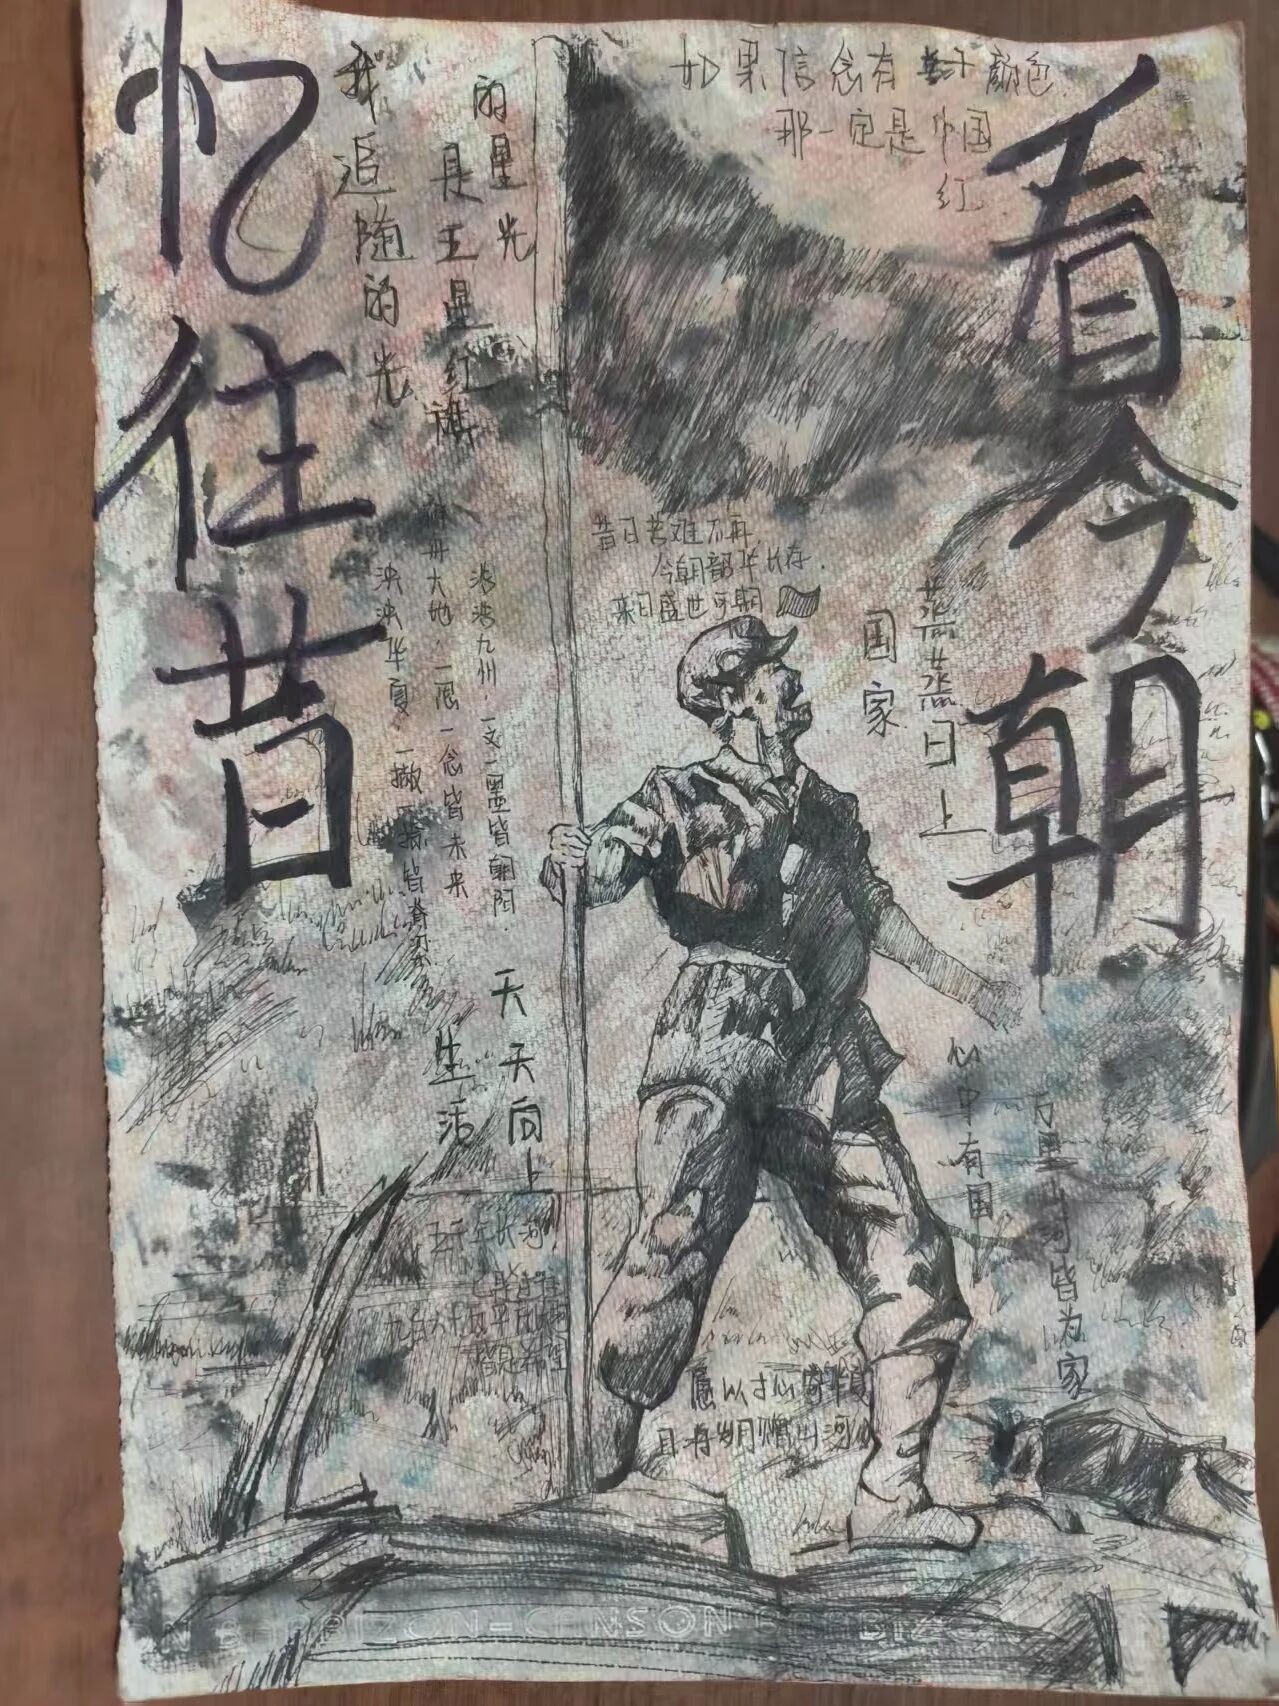 忆往昔
看今朝
如果信念有颜色.
那一定是中国
红
我追随的光
是五星红旗
的星光
昔日苦难不再,
今朝韶华长存.
来日盛世可期
国家
蒸蒸日上
泱泱华夏,一撇一捺皆脊梁
神舟大地,一眼一念皆未来
泱泱九州,一文一墨皆朝阳.
生活
天天向上
心中有国
万里山河皆为家
五千年长河
九百六十万平方
都是希望
愿以寸心寄华夏
且将岁月赠山河